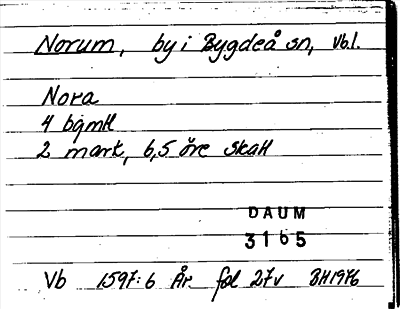 Norum, by i Bygdeå sn, Vb.l.
Nora
4 bgmtl
2 mark, 6,5 öre skatt
DAUM
3165
Vb 1597:6 År fol 27v BH1976